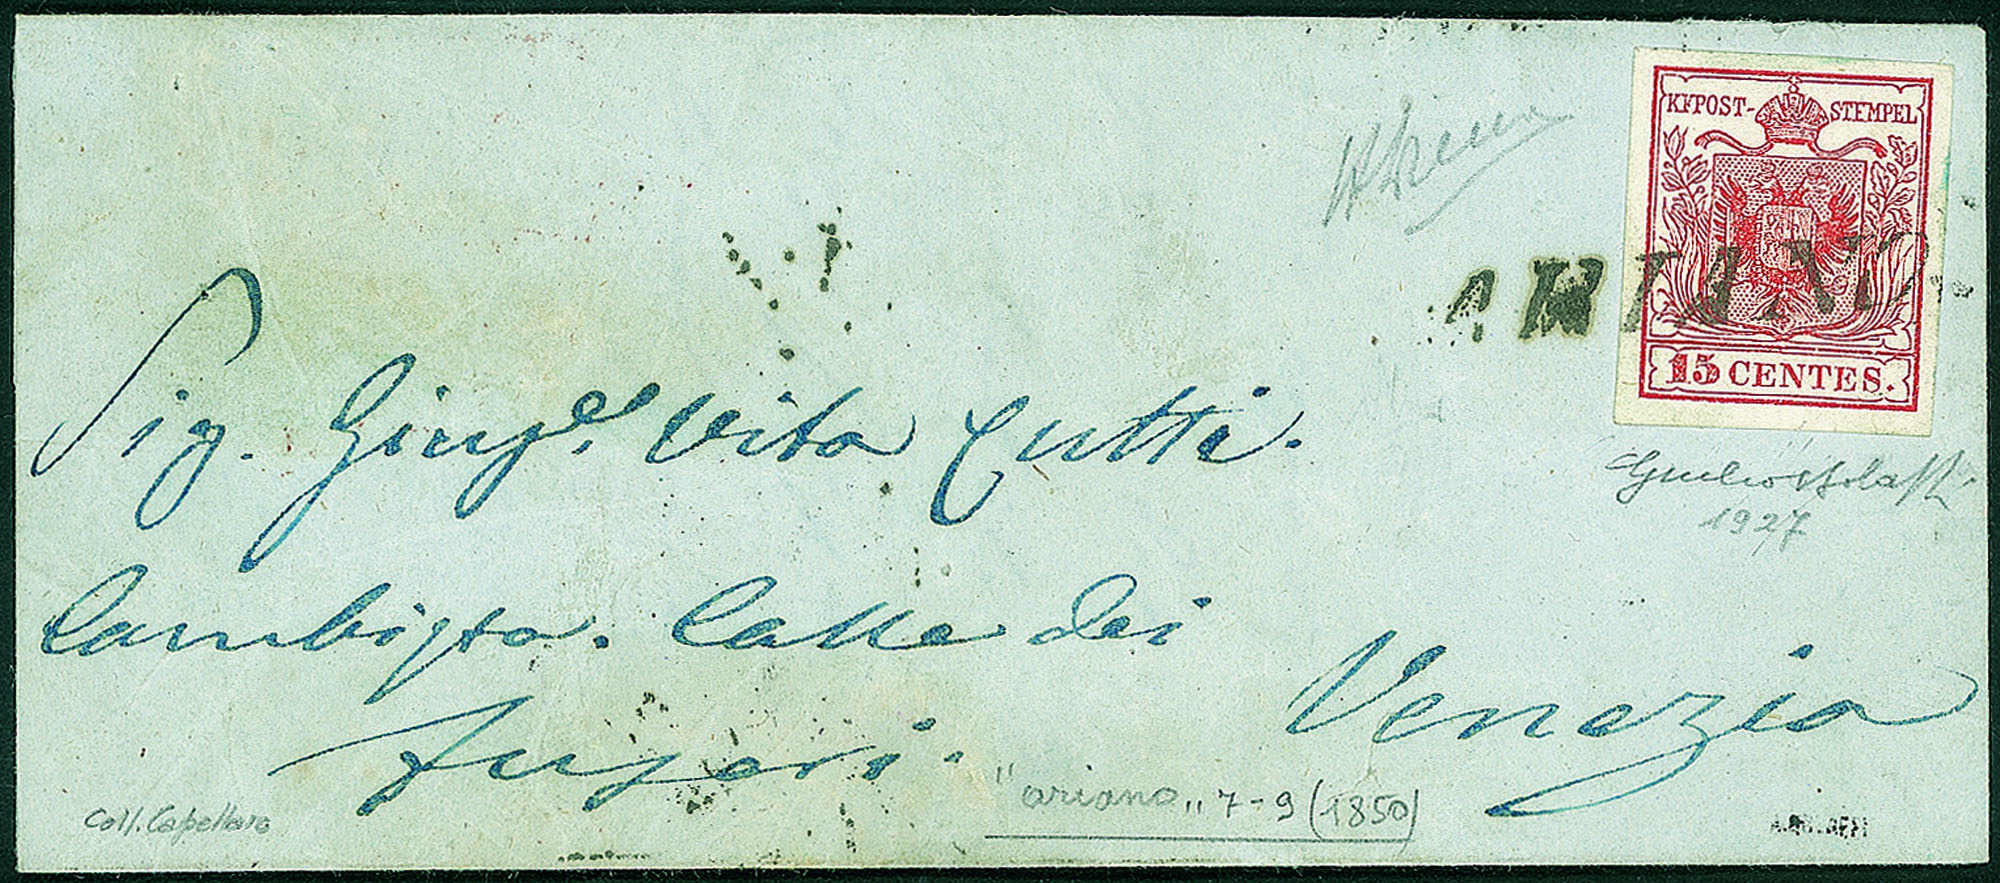 KKPOST-STEMPEL
ARIANO
15 CENTES.
1927
Sig. Giusp.e Vita Cutti.
Cambista. Calle dei
Fuseri.
Venezia
Coll. Capellaro
"ariano" 7-9 (1850)